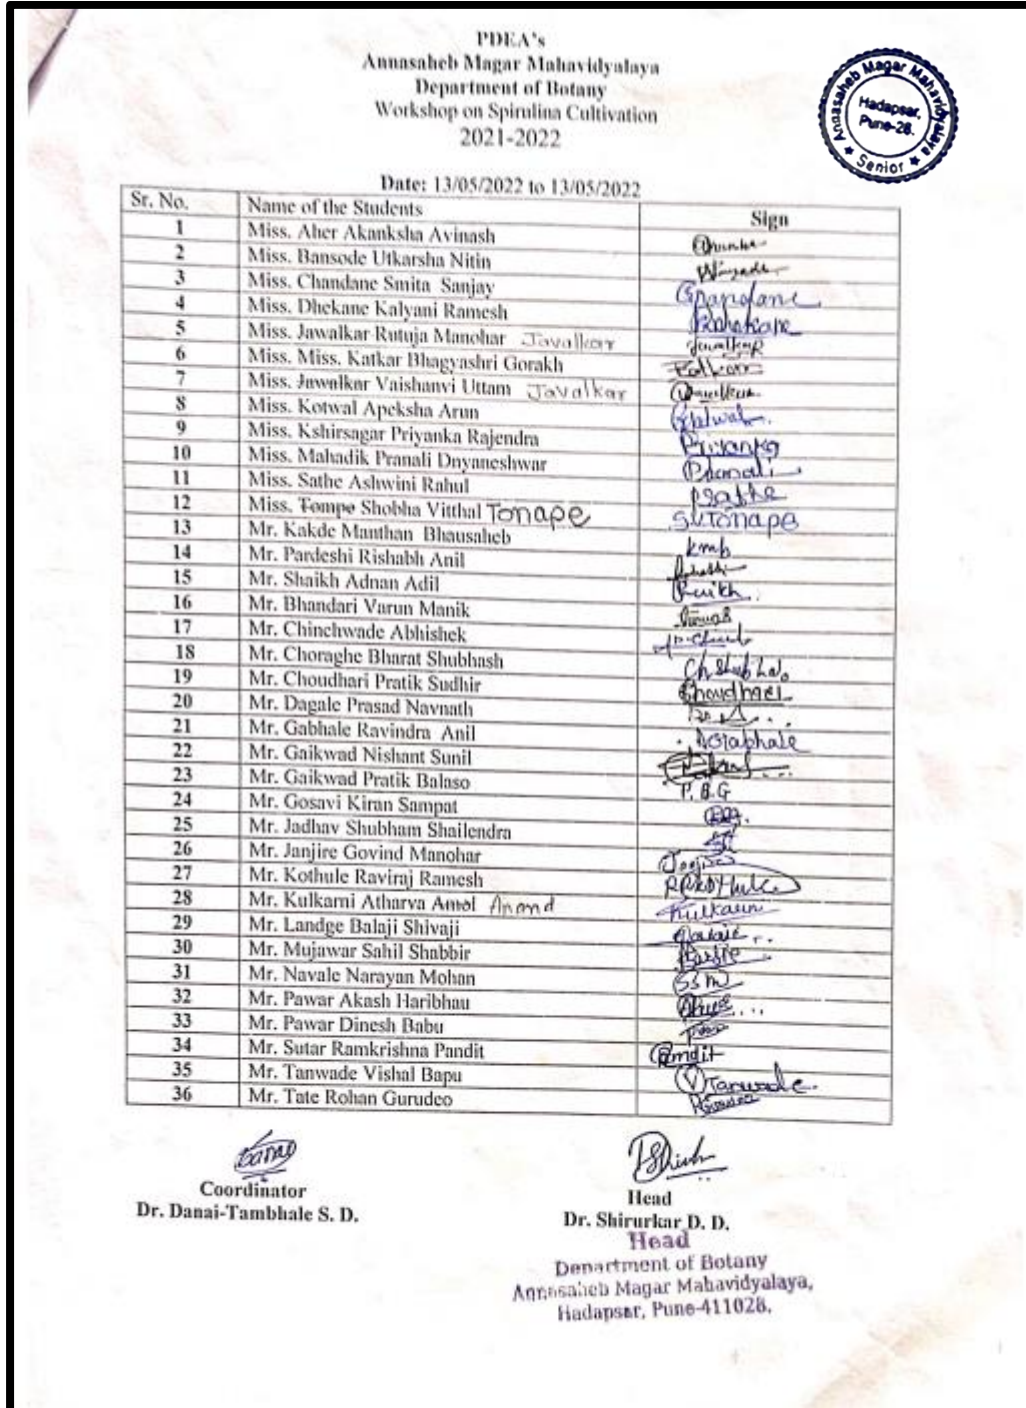 PDEA's
Annasaheb Magar Mahavidyalaya
Department of Botany
Workshop on Spirulina Cultivation
2021-2022
Annasaheb Magar Mahavidyalaya
Hadapsar,
Pune-28.
★ Senior ★
Date: 13/05/2022 to 13/05/2022
Sr. No. Name of the Students Sign
1 Miss. Aher Akanksha Avinash
2 Miss. Bansode Utkarsha Nitin
3 Miss. Chandane Smita Sanjay
4 Miss. Dhekane Kalyani Ramesh
5 Miss. Jawalkar Rutuja Manohar Javalkar
6 Miss. Miss. Katkar Bhagyashri Gorakh
7 Miss. Jawalkar Vaishanvi Uttam Javalkar
8 Miss. Kotwal Apeksha Arun
9 Miss. Kshirsagar Priyanka Rajendra Priyanka
10 Miss. Mahadik Pranali Dnyaneshwar
11 Miss. Sathe Ashwini Rahul
12 Miss. Tompe Shobha Vitthal Tonape S.V.Tonape
13 Mr. Kakde Manthan Bhausaheb kmb
14 Mr. Pardeshi Rishabh Anil
15 Mr. Shaikh Adnan Adil
16 Mr. Bhandari Varun Manik
17 Mr. Chinchwade Abhishek
18 Mr. Choraghe Bharat Shubhash
19 Mr. Choudhari Pratik Sudhir
20 Mr. Dagale Prasad Navnath
21 Mr. Gabhale Ravindra Anil
22 Mr. Gaikwad Nishant Sunil
23 Mr. Gaikwad Pratik Balaso P.B.G
24 Mr. Gosavi Kiran Sampat
25 Mr. Jadhav Shubham Shailendra
26 Mr. Janjire Govind Manohar
27 Mr. Kothule Raviraj Ramesh
28 Mr. Kulkarni Atharva Amol Anand Kulkarni
29 Mr. Landge Balaji Shivaji
30 Mr. Mujawar Sahil Shabbir
31 Mr. Navale Narayan Mohan SSM
32 Mr. Pawar Akash Haribhau
33 Mr. Pawar Dinesh Babu
34 Mr. Sutar Ramkrishna Pandit
35 Mr. Tanwade Vishal Bapu VTanwade.
36 Mr. Tate Rohan Gurudeo
Coordinator
Dr. Danai-Tambhale S. D.
Head
Dr. Shirurkar D. D.
Head
Department of Botany
Annasaheb Magar Mahavidyalaya,
Hadapsar, Pune-411028.